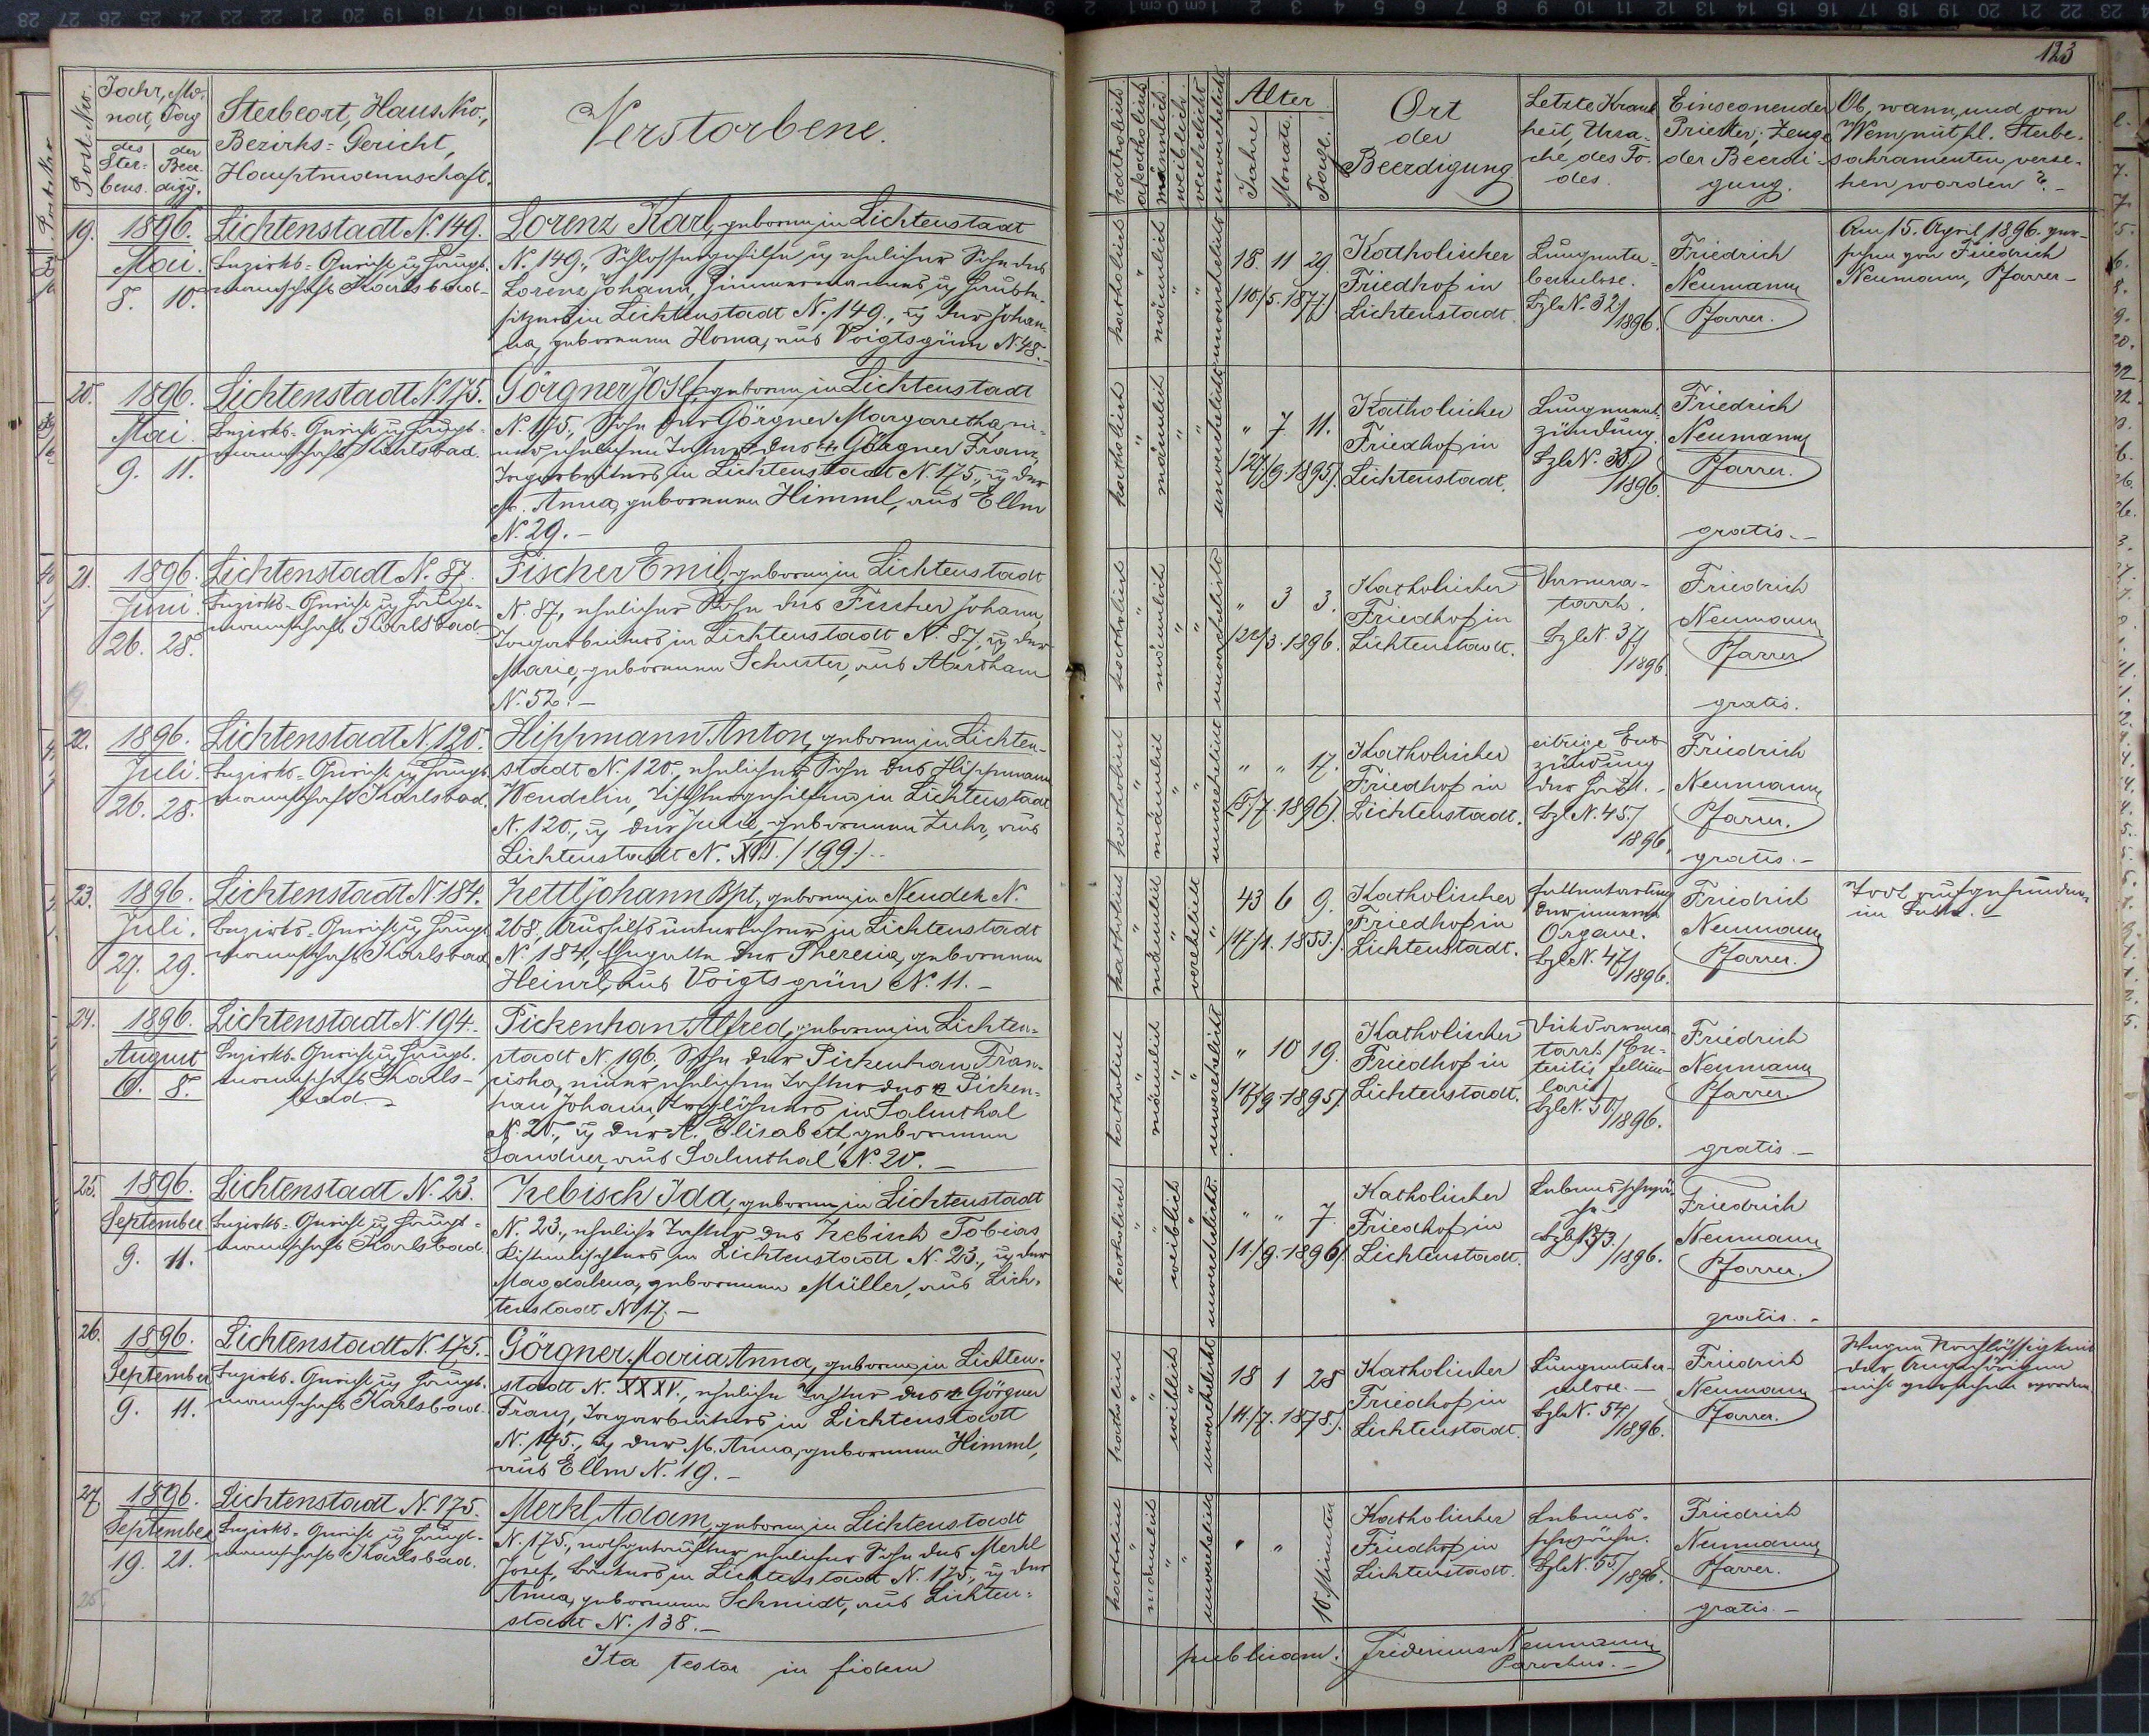 123
Post-Nro.
Jahr, Mo-
nat, Tag
des Ster-
bens.
der Beer-
digg.
Sterbeort, Haus Nro.,
Bezirks-Gericht,
Hauptmannschaft.
Verstorbene.
katholisch
akatholisch
männlich
weiblich
verehelicht
unverehelicht
Alter
Jahre
Monate
Tage
Ort
der
Beerdigung
Letzte Krank-
heit, Ursa-
che des To-
des.
Einsegnender
Priester; Zeuge
der Beerdi-
gung.
Ob, wann, und von
Wem, mit hl. Sterbe-
sakramenten verse-
hen worden? -
19.
1896.
Mai.
8. 10.
Lichtenstadt N. 149.
Bezirks-Gericht u. Haupt-
mannschaft Karlsbad
Lorenz Karl, geboren in Lichtenstadt
N. 149., Schlossergehilfe, ehelicher Sohn des
Lorenz Johann, Zimmermannes u. Hausbe-
sitzers in Lichtenstadt N. 149., u. der Johan-
na, geborenen Homa, aus Voigtsgrün N. 48. -
katholisch
männlich
unverehelicht
18 11 29.
(10./5. 1877)
Katholischer
Friedhof in
Lichtenstadt.
Lungentu-
berculose.
Bzl. N. 32./
1896.
Friedrich
Neumann
Pfarrer.
Am 15. April 1896. ver-
sehen von Friedrich
Neumann, Pfarrer -
20.
1896.
Mai
9. 11.
Lichtenstadt N. 175.
Bezirks-Gericht u. Haupt-
mannschaft Karlsbad.
Görgner Josef, geboren in Lichtenstadt
N. 175., Sohn der Görgner Margaretha, ei-
ner ehelichen Tochter des Görgner Franz,
Tagarbeiters in Lichtenstadt N. 175., u. der
M. Anna, geborenen Himml, aus Ellm
N. 29. -
katholisch
männlich
unverehelicht
" 7 11.
(27./9. 1895).
Katholischer
Friedhof in
Lichtenstadt.
Lungenent-
zündung.
Bzl. N. 35./
1896.
Friedrich
Neumann
Pfarrer.
gratis. -
21.
1896.
Juni.
26. 28.
Lichtenstadt N. 87.
Bezirks-Gericht u. Haupt-
mannschaft Karlsbad
Fischer Emil, geboren in Lichtenstadt
N. 87, ehelicher Sohn des Fischer Johann,
Tagarbeiters in Lichtenstadt N. 87, u. der
Marie, geborenen Schuster, aus Abertham
N. 52. -
katholisch
männlich
unverehelicht
" 3 3.
Katholischer
Friedhof in
Lichtenstadt.
Darmca-
tarrh.
Bzl. N. 37/
1896
Friedrich
Neumann
Pfarrer
gratis.
22.
1896.
Juli.
26. 28.
Lichtenstadt N. 120.
Bezirks-Gericht u. Haupt-
mannschaft Karlsbad.
Hippmann Anton, geboren in Lichten-
stadt N. 120., ehelicher Sohn des Hippmann
Wendelin, Tischlergehilfen in Lichtenstadt
N. 120., u. der Julie, geborenen Zuhr, aus
Lichtenstadt N. XVII./199/. -
katholisch
männlich
unverehelicht
" " 17.
Katholischer
Friedhof in
Lichtenstadt.
eitrige Ent-
zündung
der Haut. -
Bzl. N. 45./
1896.
Friedrich
Neumann
Pfarrer.
gratis. -
23.
1896.
Juli.
27. 29.
Lichtenstadt N. 184.
Bezirks-Gericht u. Haupt-
mannschaft Karlsbad
Zettl Johann Bpt., geboren in Neudek N.
268., Aushilfsunterlehrer in Lichtenstadt
N. 184, Ehegatte der Theresia, geborenen
Heinzl, aus Voigtsgrün N. 11. -
katholisch
männlich
verehelicht
43 6 9.
(17./1. 1853.)
Katholischer
Friedhof in
Lichtenstadt.
Fettentartung
der inneren
Organe.
Bzl. N. 47/
1896.
Friedrich
Neumann
Pfarrer.
Todt aufgefunden
im Bette. -
24.
1896.
August
6. 8.
Lichtenstadt N. 194.
Bezirks-Gericht u. Haupt-
mannschaft Karls-
bad. -
Pickenhan Alfred, geboren in Lichten-
stadt N. 196, Sohn der Pickenhan Fran-
ziska, einer ehelichen Tochter des Picken-
han Johann, Taglöhners in Salmthal
N. 20., u. der A. Elisabeth, geborenen
Sandner, aus Salmthal N. 20. -
katholisch
männlich
unverehelicht
" 10 19.
(17./9. 1895).
Katholischer
Friedhof in
Lichtenstadt.
Dickdarmca-
tarrh (En-
teritis follicu-
laris)
Bzl. N. 50/
1896.
Friedrich
Neumann
Pfarrer
gratis. -
25.
1896.
September
9. 11.
Lichtenstadt N. 23.
Bezirks-Gericht u. Haupt-
mannschaft Karlsbad.
Zebisch Ida, geboren in Lichtenstadt
N. 23., eheliche Tochter des Zebisch Tobias
Bautischlers in Lichtenstadt N. 23., u. der
Magdalena, geborenen Müller, aus Lich-
tenstadt N. 17. -
katholisch
weiblich
unverehelicht.
" " 7.
(1./9. 1896).
Katholischer
Friedhof in
Lichtenstadt.
Lebensschwä-
che. -
/1896.
Friedrich
Neumann
Pfarrer.
gratis. -
26.
1896.
September
9. 11.
Lichtenstadt N. 175.
Bezirks-Gericht u. Haupt-
mannschaft Karlsbad.
Görgner Maria Anna, geboren in Lichten-
stadt N. XXXV., eheliche Tochter des Görgner
Franz, Tagarbeiters in Lichtenstadt
N. 175., u. der M. Anna, geborenen Himml,
aus Ellm N. 19. -
katholisch
weiblich
unverehelicht
18 1 28
Katholischer
Friedhof in
Lichtenstadt.
Lungentuber-
culose. -
Bzl. N. 54/
1896.
Friedrich
Neumann
Pfarrer.
Wegen Nachlässigkeit
der Angehörigen
nicht versehen worden.
27.
1896.
September
19. 21.
Lichtenstadt N. 175.
Bezirks-Gericht u. Haupt-
mannschaft Karlsbad.
Merkl Adam, geboren in Lichtenstadt
N. 175., nothgetaufter ehelicher Sohn des Merkl
Josef, Bäckers in Lichtenstadt N. 175, u. der
Anna, geborenen Schmidt, aus Lichten-
stadt N. 138. -
katholisch
männlich
unverehelicht
" "
Minuten
Katholischer
Friedhof in
Lichtenstadt.
Lebens-
schwäche.
Bzl. N. 55/
1896.
Friedrich
Neumann
Pfarrer.
gratis. -
Ita testor in fidem
publicam. Fridericus Neumann
Parochus. -